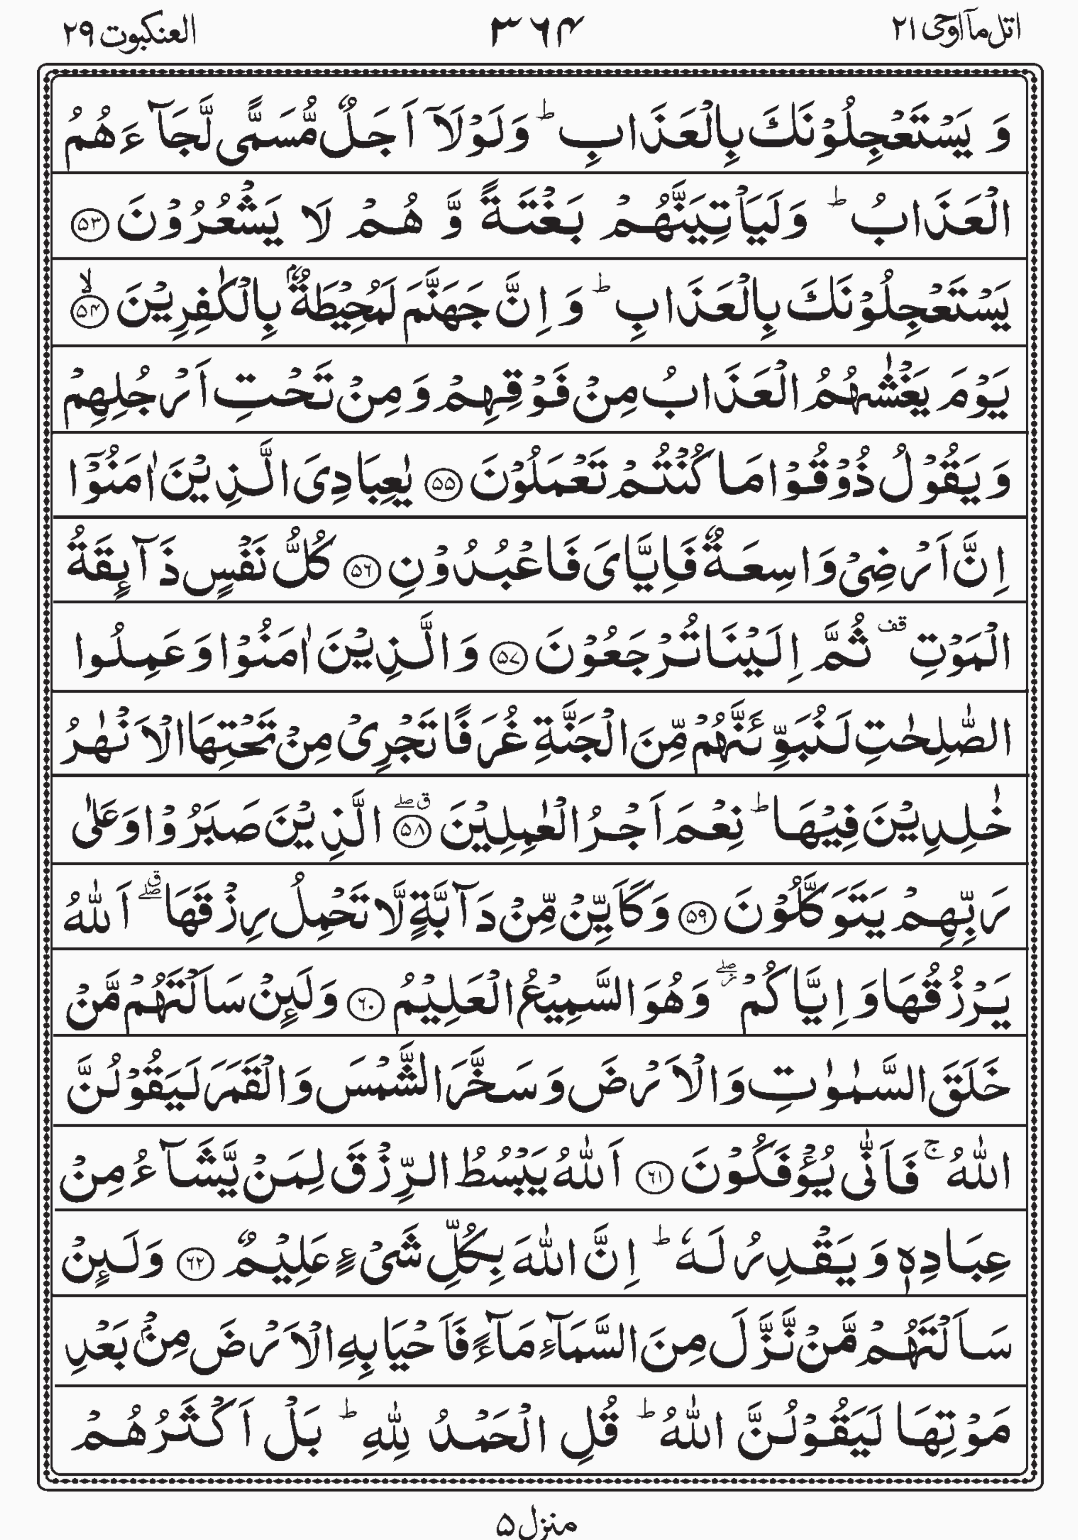 اتل مآ اوحی ۲۱ ۳۶۴ العنکبوت ۲۹
وَ یَسْتَعْجِلُوْنَكَ بِالْعَذَابِ ؕ وَلَوْلَاۤ اَجَلٌ مُّسَمًّی لَّجَآءَهُمُ
الْعَذَابُ ؕ وَلَیَاْتِیَنَّهُمْ بَغْتَةً وَّ هُمْ لَا یَشْعُرُوْنَ ﴿۵۳﴾
یَسْتَعْجِلُوْنَكَ بِالْعَذَابِ ؕ وَ اِنَّ جَهَنَّمَ لَمُحِیْطَةٌۢ بِالْكٰفِرِیْنَ ﴿ۙ۵۴﴾
یَوْمَ یَغْشٰىهُمُ الْعَذَابُ مِنْ فَوْقِهِمْ وَ مِنْ تَحْتِ اَرْجُلِهِمْ
وَ یَقُوْلُ ذُوْقُوْا مَا كُنْتُمْ تَعْمَلُوْنَ ﴿۵۵﴾ یٰعِبَادِیَ الَّذِیْنَ اٰمَنُوْۤا
اِنَّ اَرْضِیْ وَاسِعَةٌ فَاِیَّایَ فَاعْبُدُوْنِ ﴿۵۶﴾ كُلُّ نَفْسٍ ذَآىِٕقَةُ
الْمَوْتِ قف ثُمَّ اِلَیْنَا تُرْجَعُوْنَ ﴿۵۷﴾ وَ الَّذِیْنَ اٰمَنُوْا وَ عَمِلُوا
الصّٰلِحٰتِ لَنُبَوِّئَنَّهُمْ مِّنَ الْجَنَّةِ غُرَفًا تَجْرِیْ مِنْ تَحْتِهَا الْاَنْهٰرُ
خٰلِدِیْنَ فِیْهَا ؕ نِعْمَ اَجْرُ الْعٰمِلِیْنَ ﴿ۗۖ۵۸﴾ الَّذِیْنَ صَبَرُوْا وَ عَلٰی
رَبِّهِمْ یَتَوَكَّلُوْنَ ﴿۵۹﴾ وَ كَاَیِّنْ مِّنْ دَآبَّةٍ لَّا تَحْمِلُ رِزْقَهَا ۗۖ اَللّٰهُ
یَرْزُقُهَا وَ اِیَّاكُمْ ۖؗ وَهُوَ السَّمِیْعُ الْعَلِیْمُ ﴿۶۰﴾ وَلَىِٕنْ سَاَلْتَهُمْ مَّنْ
خَلَقَ السَّمٰوٰتِ وَ الْاَرْضَ وَ سَخَّرَ الشَّمْسَ وَ الْقَمَرَ لَیَقُوْلُنَّ
اللّٰهُ ۚ فَاَنّٰی یُؤْفَكُوْنَ ﴿۶۱﴾ اَللّٰهُ یَبْسُطُ الرِّزْقَ لِمَنْ یَّشَآءُ مِنْ
عِبَادِهٖ وَ یَقْدِرُ لَهٗ ؕ اِنَّ اللّٰهَ بِكُلِّ شَیْءٍ عَلِیْمٌ ﴿۶۲﴾ وَلَىِٕنْ
سَاَلْتَهُمْ مَّنْ نَّزَّلَ مِنَ السَّمَآءِ مَآءً فَاَحْیَا بِهِ الْاَرْضَ مِنْۢ بَعْدِ
مَوْتِهَا لَیَقُوْلُنَّ اللّٰهُ ؕ قُلِ الْحَمْدُ لِلّٰهِ ؕ بَلْ اَكْثَرُهُمْ
منزل ۵